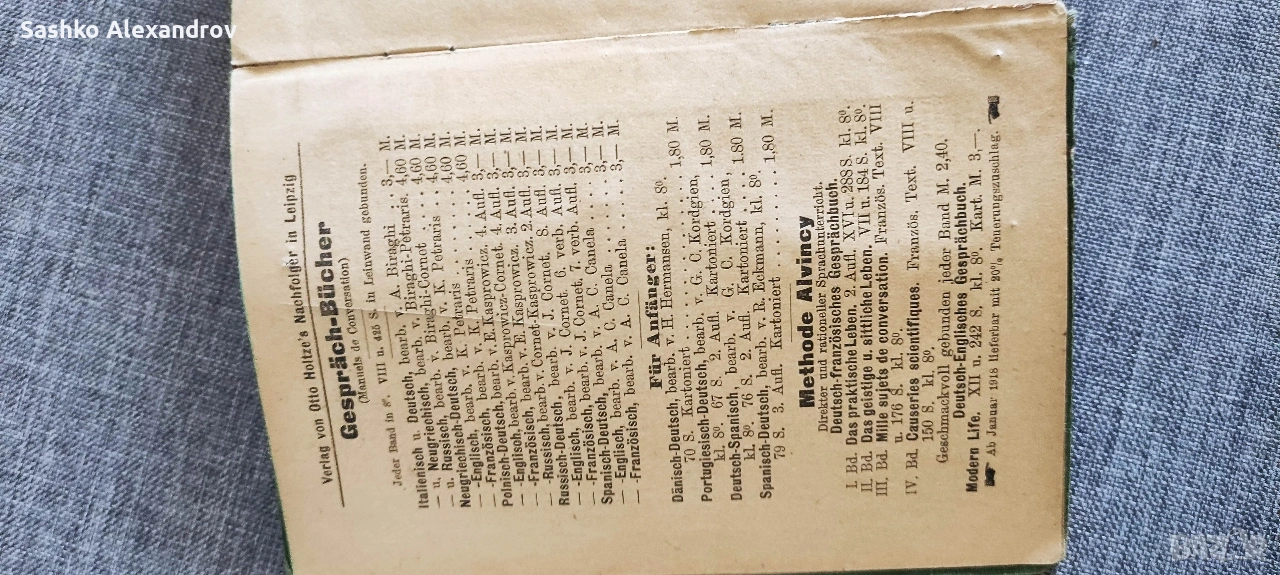 Sashko Alexandrov
Verlag von Otto Holtze's Nachfolger in Leipzig
Gespräch-Bücher
(Manuels de Conversation)
Jeder Band in 8°. VIII u. 426 S. in Leinwand gebunden.
Italienisch u. Deutsch, bearb. v. A. Biraghi . . . . 3,— M.
— u. Neugriechisch, bearb. v. Biraghi-Petraris. 4,60 M.
— u. Russisch, bearb. v. Biraghi-Cornet . . . . 4,60 M.
Neugriechisch-Deutsch, bearb. v. K. Petraris . . . 4,60 M.
— -Englisch, bearb. v. K. Petraris . . . . . 4,60 M.
— -Französisch, bearb. v. E. Kasprowicz. 4. Aufl. 3,— M.
Polnisch-Deutsch, bearb. v. Kasprowicz-Cornet. 4. Aufl. 3,— M.
— -Englisch, bearb. v. E. Kasprowicz. 3. Aufl. 3,— M.
— -Französisch, bearb. v. Cornet-Kasprowicz. 2. Aufl. 3,— M.
— -Russisch, bearb. v. J. Cornet. 8. Aufl. 3,— M.
Russisch-Deutsch, bearb. v. J. Cornet. 6. verb. Aufl. 3,— M.
— -Englisch, bearb. v. J. Cornet. 7. verb. Aufl. 3,— M.
— -Französisch, bearb. v. A. C. Canela . . . . 3,— M.
Spanisch-Deutsch, bearb. v. A. C. Canela . . . . 3,— M.
— -Englisch, bearb. v. A. C. Canela . . . . 3,— M.
— -Französisch, bearb. v. A. C. Canela
Für Anfänger:
Dänisch-Deutsch, bearb. v. H. Hermansen, kl. 8°.
70 S. Kartoniert . . . . . . . . 1,80 M.
Portugiesisch-Deutsch, bearb. v. G. C. Kordgien,
kl. 8° 67 S. 2. Aufl. Kartoniert . . . . 1,80 M.
Deutsch-Spanisch, bearb. v. G. C. Kordgien,
kl. 8° 76 S. 2. Aufl. Kartoniert . . . . 1.80 M.
Spanisch-Deutsch, bearb. v. R. Eckmann, kl. 8°
79 S. 3. Aufl. Kartoniert . . . . . 1,80 M.
Methode Alvincy
Direkter und rationeller Sprachunterricht.
Deutsch-französisches Gesprächbuch.
I. Bd. Das praktische Leben. 2. Aufl. XVI u. 288 S. kl. 8°.
II. Bd. Das geistige u. sittliche Leben. VII u. 184 S. kl. 8°.
III. Bd. Mille sujets de conversation. Französ. Text. VIII
u. 176 S. kl. 8°.
IV. Bd. Causeries scientifiques. Französ. Text. VIII u.
150 S. kl. 8°.
Geschmackvoll gebunden jeder Band M. 2,40.
Deutsch-Englisches Gesprächbuch.
Modern Life. XII u. 242 S. kl. 8°. Kart. M. 3,—.
Ab Januar 1918 lieferbar mit 90% Teuerungszuschlag.